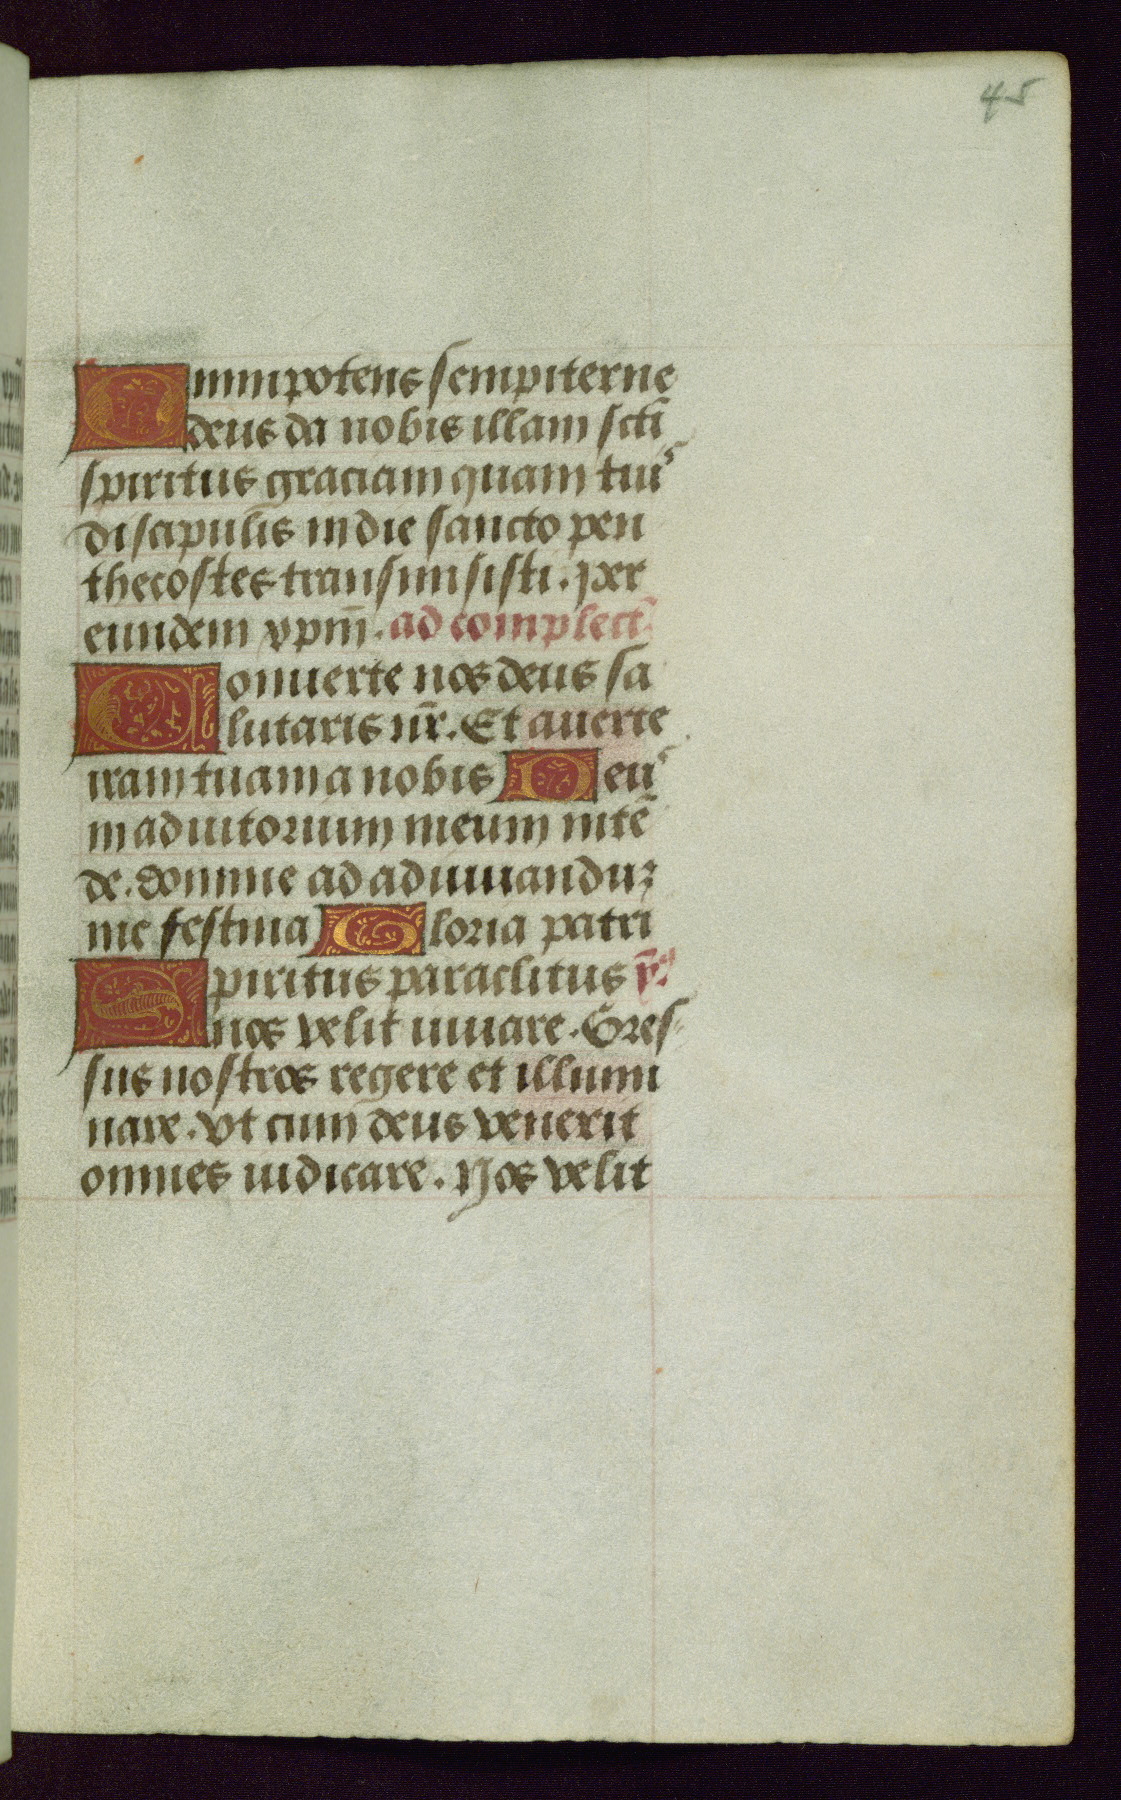 45
Omnipotens sempiterne
deus da nobis illam scti̅
spiritus graciam quam tuis
discipulis in die sancto pen
thecostes transmisisti. per
eundem xpm̅. ad complect̅
Conuerte nos deus sa
lutaris nr̅. Et auerte
iram tuam a nobis Deus
in adiutorium meum inte̅
de. domine ad adiuuanduꝫ
me festina Gloria patri
Spiritus paraclitus
nos velit iuuare. Gres-
sus nostros regere et illumi
nare. vt cum deus venerit
omnes iudicare. Nos velit